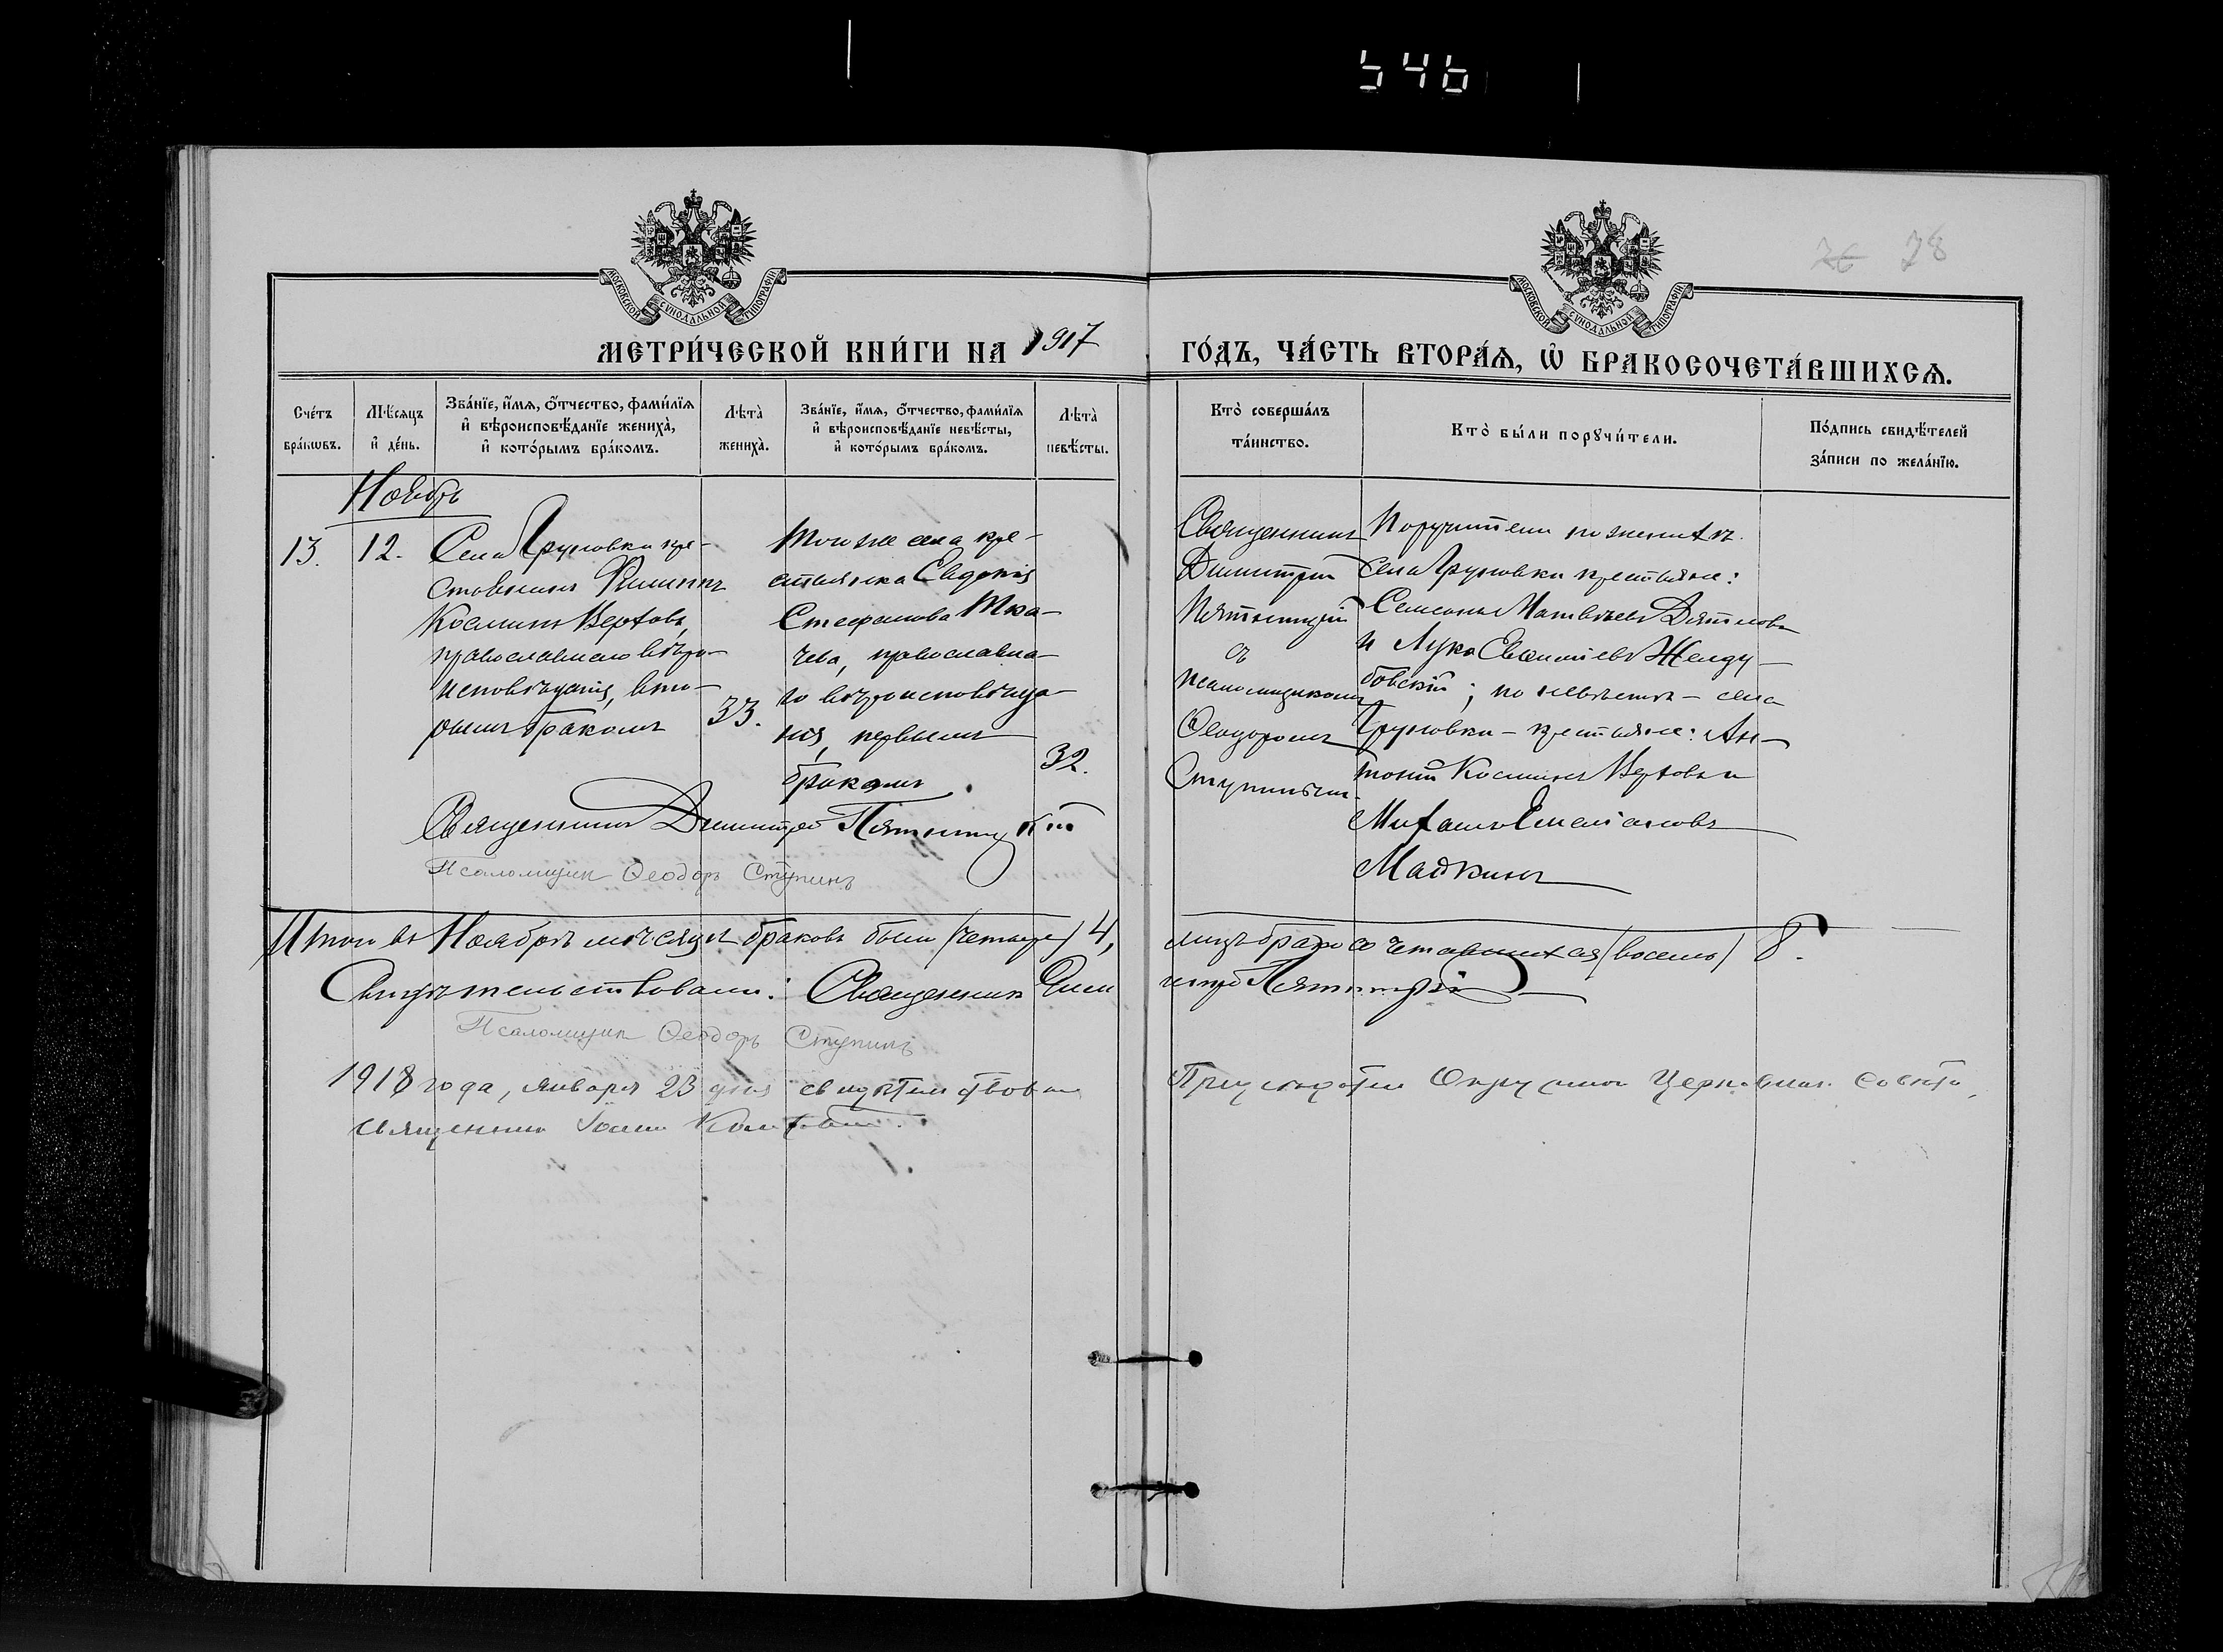 546
26 78
МОСКОВСКОЙ СѴНОДАЛЬНОЙ ТИПОГРАФІИ
МОСКОВСКОЙ СѴНОДАЛЬНОЙ ТИПОГРАФІИ
МЕТРИ́ЧЕСКОЙ КНИ́ГИ НА 1917 ГО́ДЪ, ЧА́СТЬ ВТОРА́Ѧ, Ѽ БРАКОСОЧЕТА́ВШИХСѦ.
Сче́тъ бра́кѡвъ.
Мѣ́сяцъ и҆ де́нь.
Зва́нїе, и҆́мѧ, ѻ҆́тчество, фами́лїѧ
и҆ вѣроисповѣ́данїе жениха̀,
и҆ кото́рымъ бра́комъ.
Лѣта̀ жениха̀.
Зва́нїе, и҆́мѧ, ѻ҆́тчество, фами́лїѧ
и҆ вѣроисповѣ́данїе невѣ́сты,
и҆ кото́рымъ бра́комъ.
Лѣта̀ невѣ́сты.
Кто̀ соверша́лъ та́инство.
Кто̀ бы́ли порꙋчи́тели.
По́дпись свидѣ́телей
за́писи по жела́нїю.
Ноябрь
13.
12.
Села Грузовки кре-
стьянинъ Филиппъ
Косминъ Верховъ,
православнаго вѣро-
исповѣданія, вто-
рымъ бракомъ
33.
Того же села кре-
стьянка Евдокія
Стефанова Тка-
чева, православна-
го вѣроисповѣда-
нія, первымъ
бракомъ.
32.
Священникъ
Димитрій
Пятницкій
съ
псаломщикомъ
Ѳеодоромъ
Ступинымъ.
Поручители по женихѣ:
села Грузовки крестьяне:
Матвѣевъ Дятловъ
и Лука Желду-
бовскій; по невѣстѣ – села
Грузовки – крестьяне: Ан-
тоній Косминъ Верховъ и
Михаилъ
Священникъ Димитрій Пятницкій
Псаломщикъ Ѳеодоръ Ступинъ
Итого въ Ноябрѣ мѣсяцѣ браковъ было (четыре) 4, лицъ бракосочетавшихся (восемь) 8.
Свидѣтельствовали: Священникъ Димитрій Пятницкій
Псаломщикъ Ѳеодоръ Ступинъ
1918 года, января 23 дня свидѣтельствовалъ Предсѣдатель Окружного Церковнаго Совѣта,
священникъ Іоаннъ